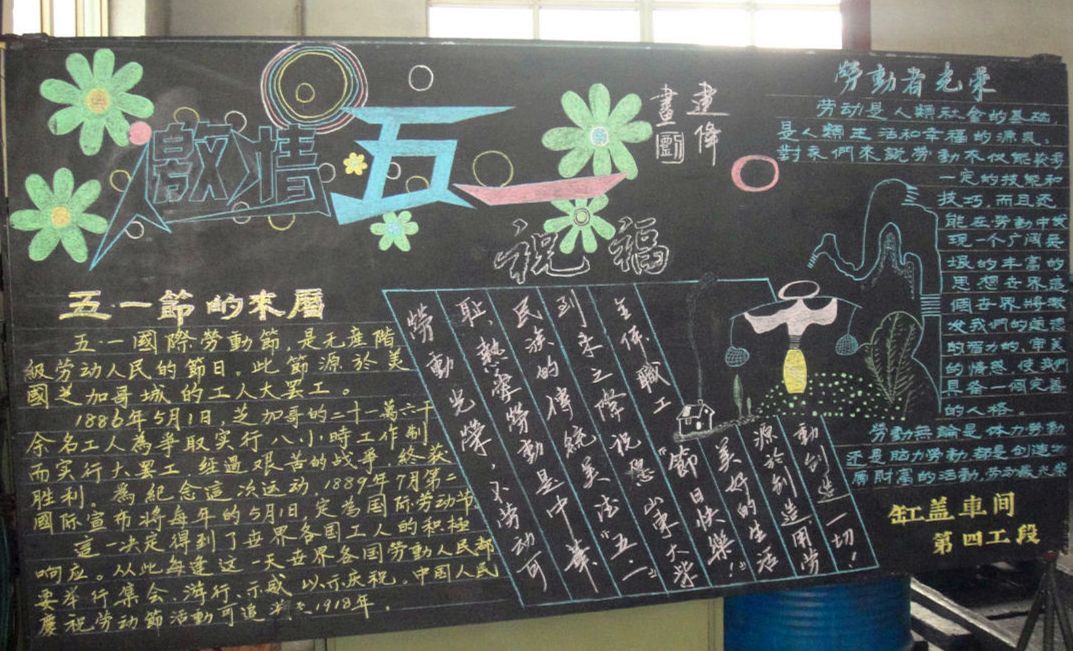 激情五一
祝福
建伟
畫劉
五·一節的來曆
五·一國際勞動節，是无産階
級劳动人民的節日。此節源於美
國芝加哥城的工人大罢工。
1886年5月1日，芝加哥的二十一萬六千
余名工人為爭取实行八小時工作制
而实行大罢工，经過艰苦的战爭，終获
胜利。為紀念這次运动，1889年7月第二
國际宣布將每年的5月1日，定為国际劳动节。
這一决定得到了世界各国工人的积極
响应。从此每逢这一天世界各国劳動人民都
要举行集会、游行、示威，以示庆祝。中国人民
慶祝劳动節活動可追溯之1918年。
勞動光榮，不劳动可
耻，熱愛勞動是中華
民族的傳統美德“五一”
到來之際祝愿“山東大柴”
全体職工“節日快樂！”
美好的生活
源於創造，用劳
動創造一切！
勞動者光荣
劳动是人類社會的基础，
是人類生活和幸福的源泉。
對於們來説劳動不仅能獲得
一定的技能和
技巧，而且还
能在劳動中发
现一个广阔無
垠的丰富的
思想世界感
個世界將激
发我們的道德
的潜力的，完美
的情感，使我們
具备一個完善
的人格。
勞動無論是体力勞動
还是脑力勞動，都是创造物
质財富的活動，劳动最光荣
缸盖车间
第四工段